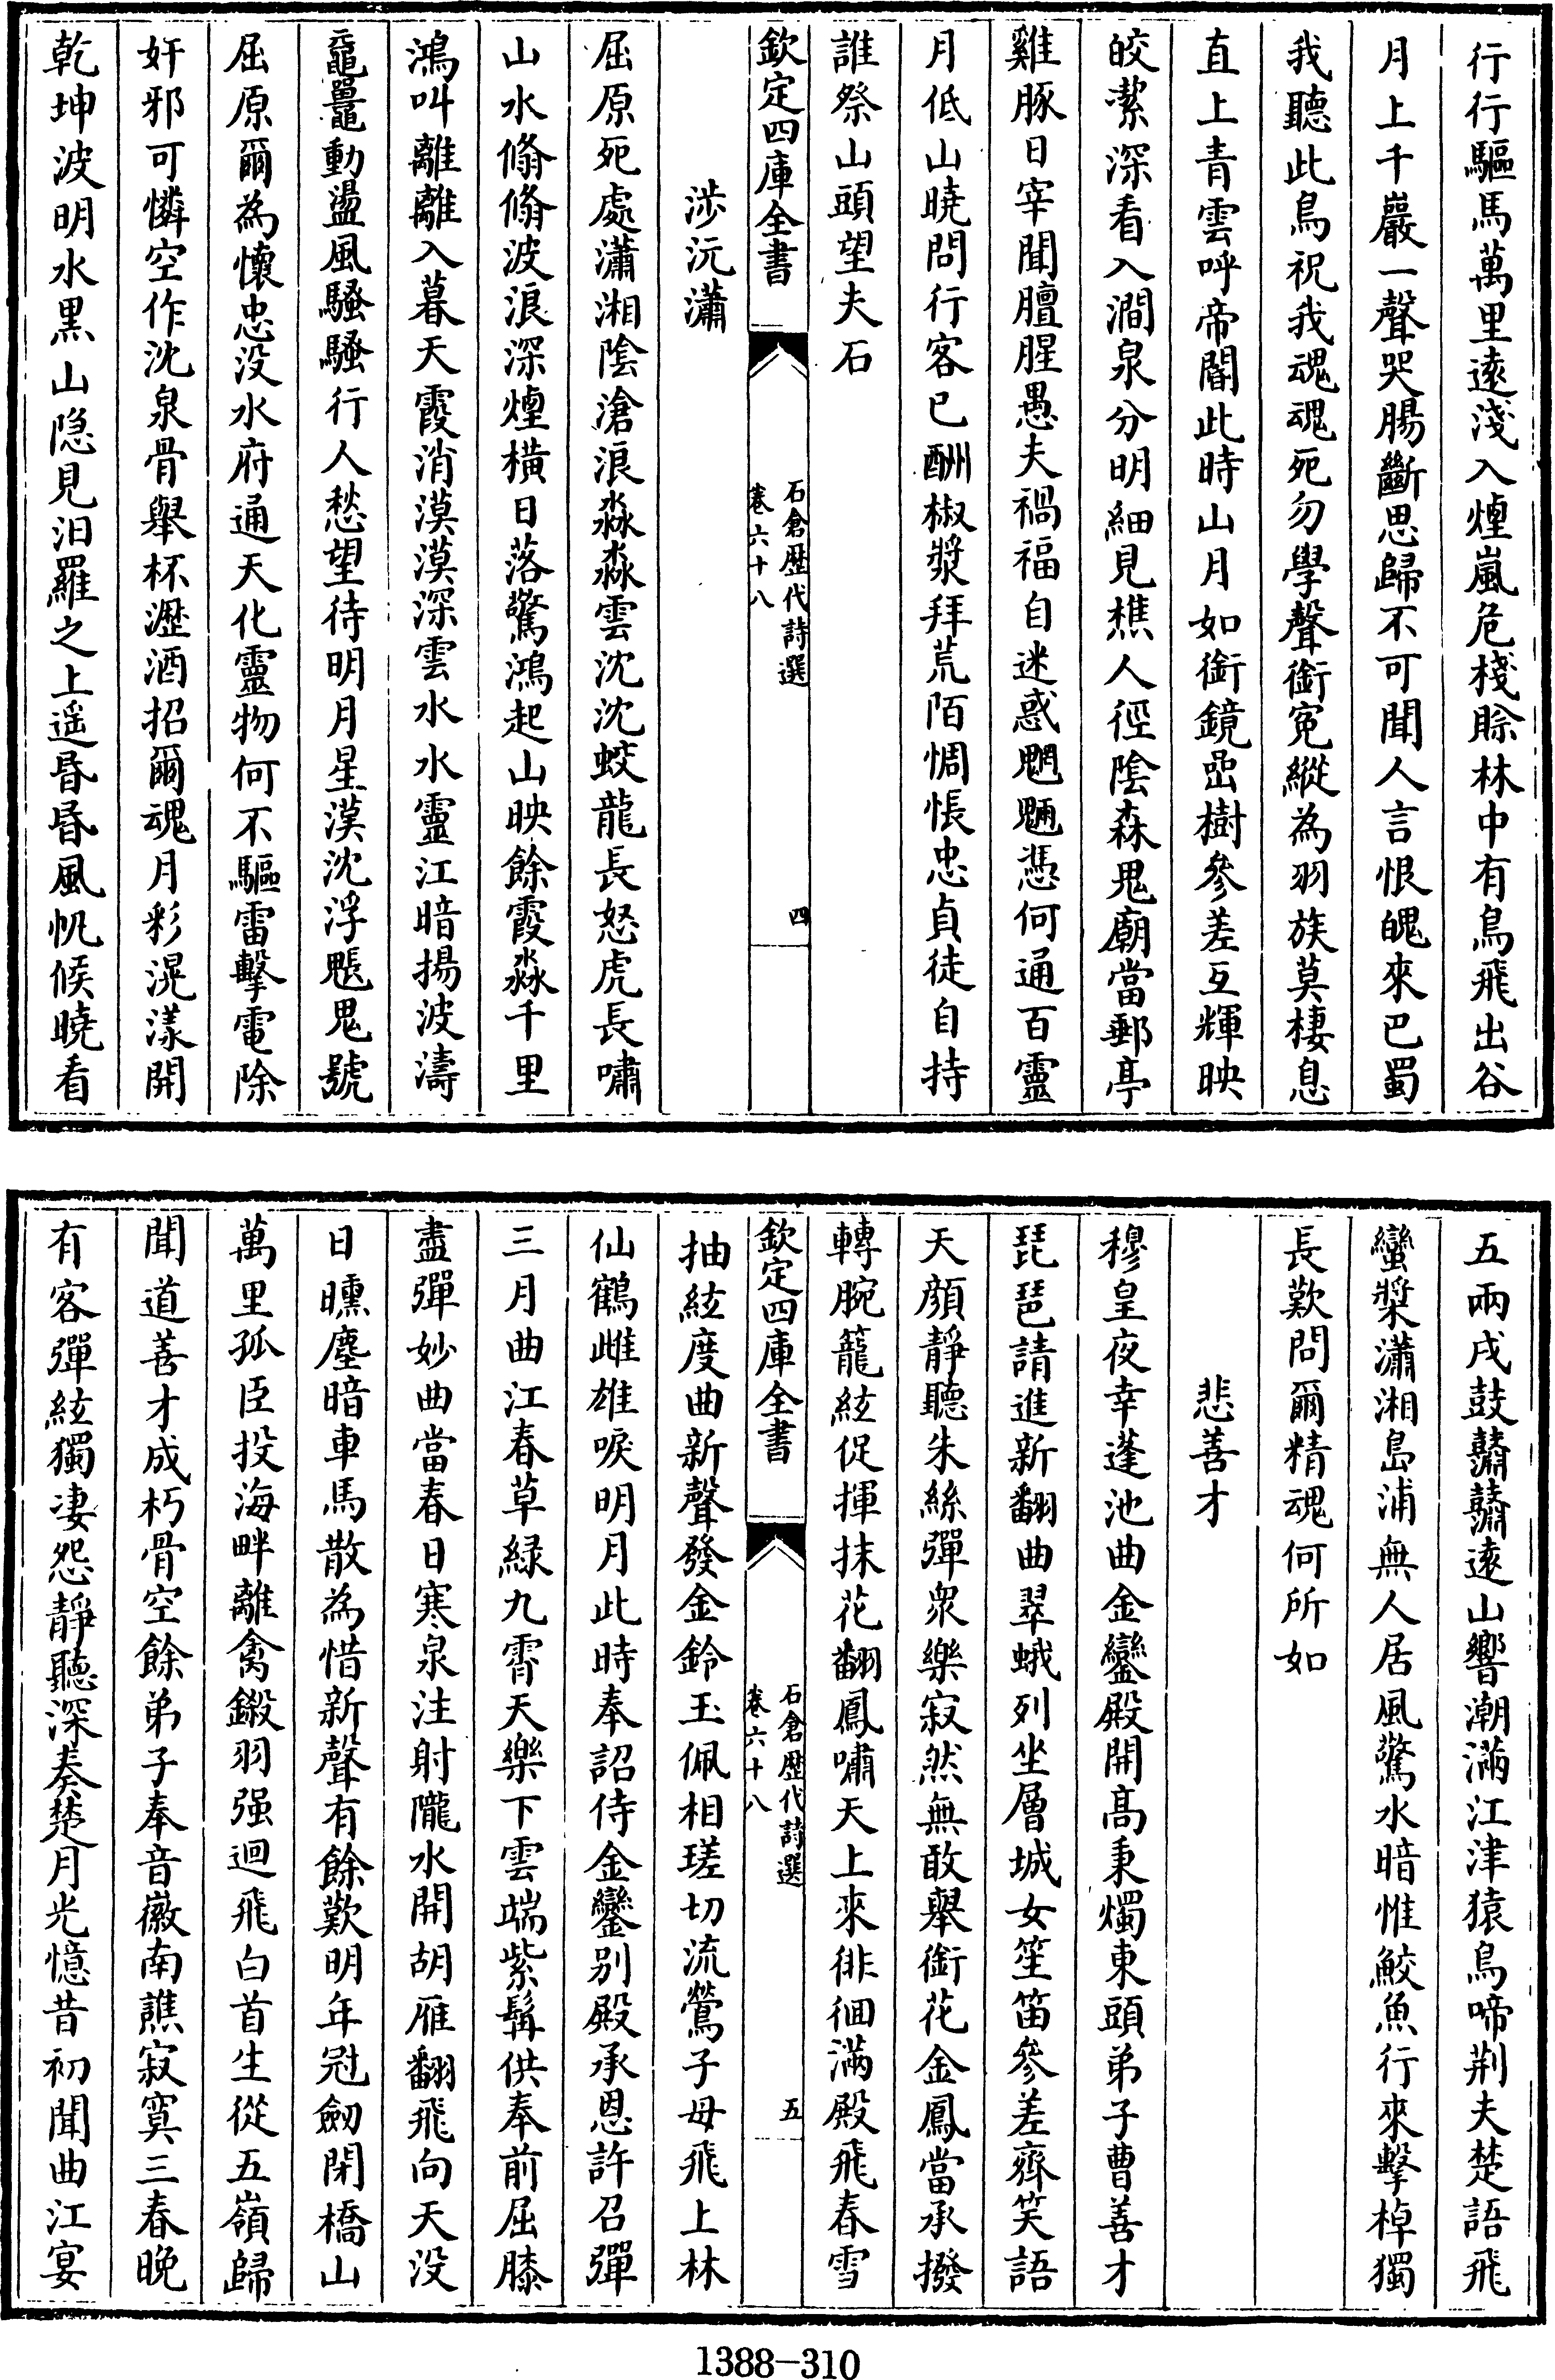 行行驅馬萬里遠淺入煙嵐危棧賒林中有鳥飛出谷
月上千巖一聲哭腸斷思歸不可聞人言恨魄來巴蜀
我聽此鳥祝我魂魂死勿學聲銜寃縱為羽族莫棲息
直上青雲呼帝閽此時山月如銜鏡嵒樹參差互輝映
皎潔深看入澗泉分明細見樵人徑陰森鬼廟當郵亭
雞豚日宰聞膻腥愚夫禍福自迷惑魍魎憑何通百靈
月低山曉問行客已酬椒漿拜荒陌惆悵忠貞徒自持
誰祭山頭望夫石
欽定四庫全書
石倉歴代詩選
卷六十八
四
涉沅瀟
屈原死處瀟湘陰滄浪淼淼雲沈沈蛟龍長怒虎長嘯
山水翛翛波浪深煙橫日落驚鴻起山映餘霞淼千里
鴻叫離離入暮天霞消漠漠深雲水水靈江暗揚波濤
黿鼉動盪風騷騷行人愁望待明月星漢沈浮颩鬼號
屈原爾為懷忠没水府通天化靈物何不驅雷擊電除
奸邪可憐空作沈泉骨舉杯瀝酒招爾魂月彩滉漾開
乾坤波明水黒山隐見汨羅之上遥昏昏風帆候曉看
五兩戍鼓鼘鼘遠山響潮滿江津猿鳥啼荆夫楚語飛
蠻槳瀟湘島浦無人居風驚水暗惟鮫魚行來擊棹獨
長歎問爾精魂何所如
悲善才
穆皇夜幸蓬池曲金鑾殿開髙秉燭東頭弟子曹善才
琵琶請進新翻曲翠蛾列坐層城女笙笛參差齊笑語
天顔靜聽朱絲彈衆樂寂然無敢舉銜花金鳳當承撥
轉腕籠絃促揮抹花翻鳳嘯天上來徘徊滿殿飛春雪
抽絃度曲新聲發金鈴玉佩相瑳切流鶯子母飛上林
欽定四庫全書
石倉歴代詩選
卷六十八
五
仙鶴雌雄唳明月此時奉詔侍金鑾别殿承恩許召彈
三月曲江春草緑九霄天樂下雲端紫髯供奉前屈膝
盡彈妙曲當春日寒泉注射隴水開胡雁翻飛向天没
日曛塵暗車馬散為惜新聲有餘歎明年冠劒閉橋山
萬里孤臣投海畔離禽鎩羽强迴飛白首生從五嶺歸
聞道善才成朽骨空餘弟子奉音徽南譙寂寞三春晚
有客彈絃獨凄怨靜聽深奏楚月光憶昔初聞曲江宴
1388-310